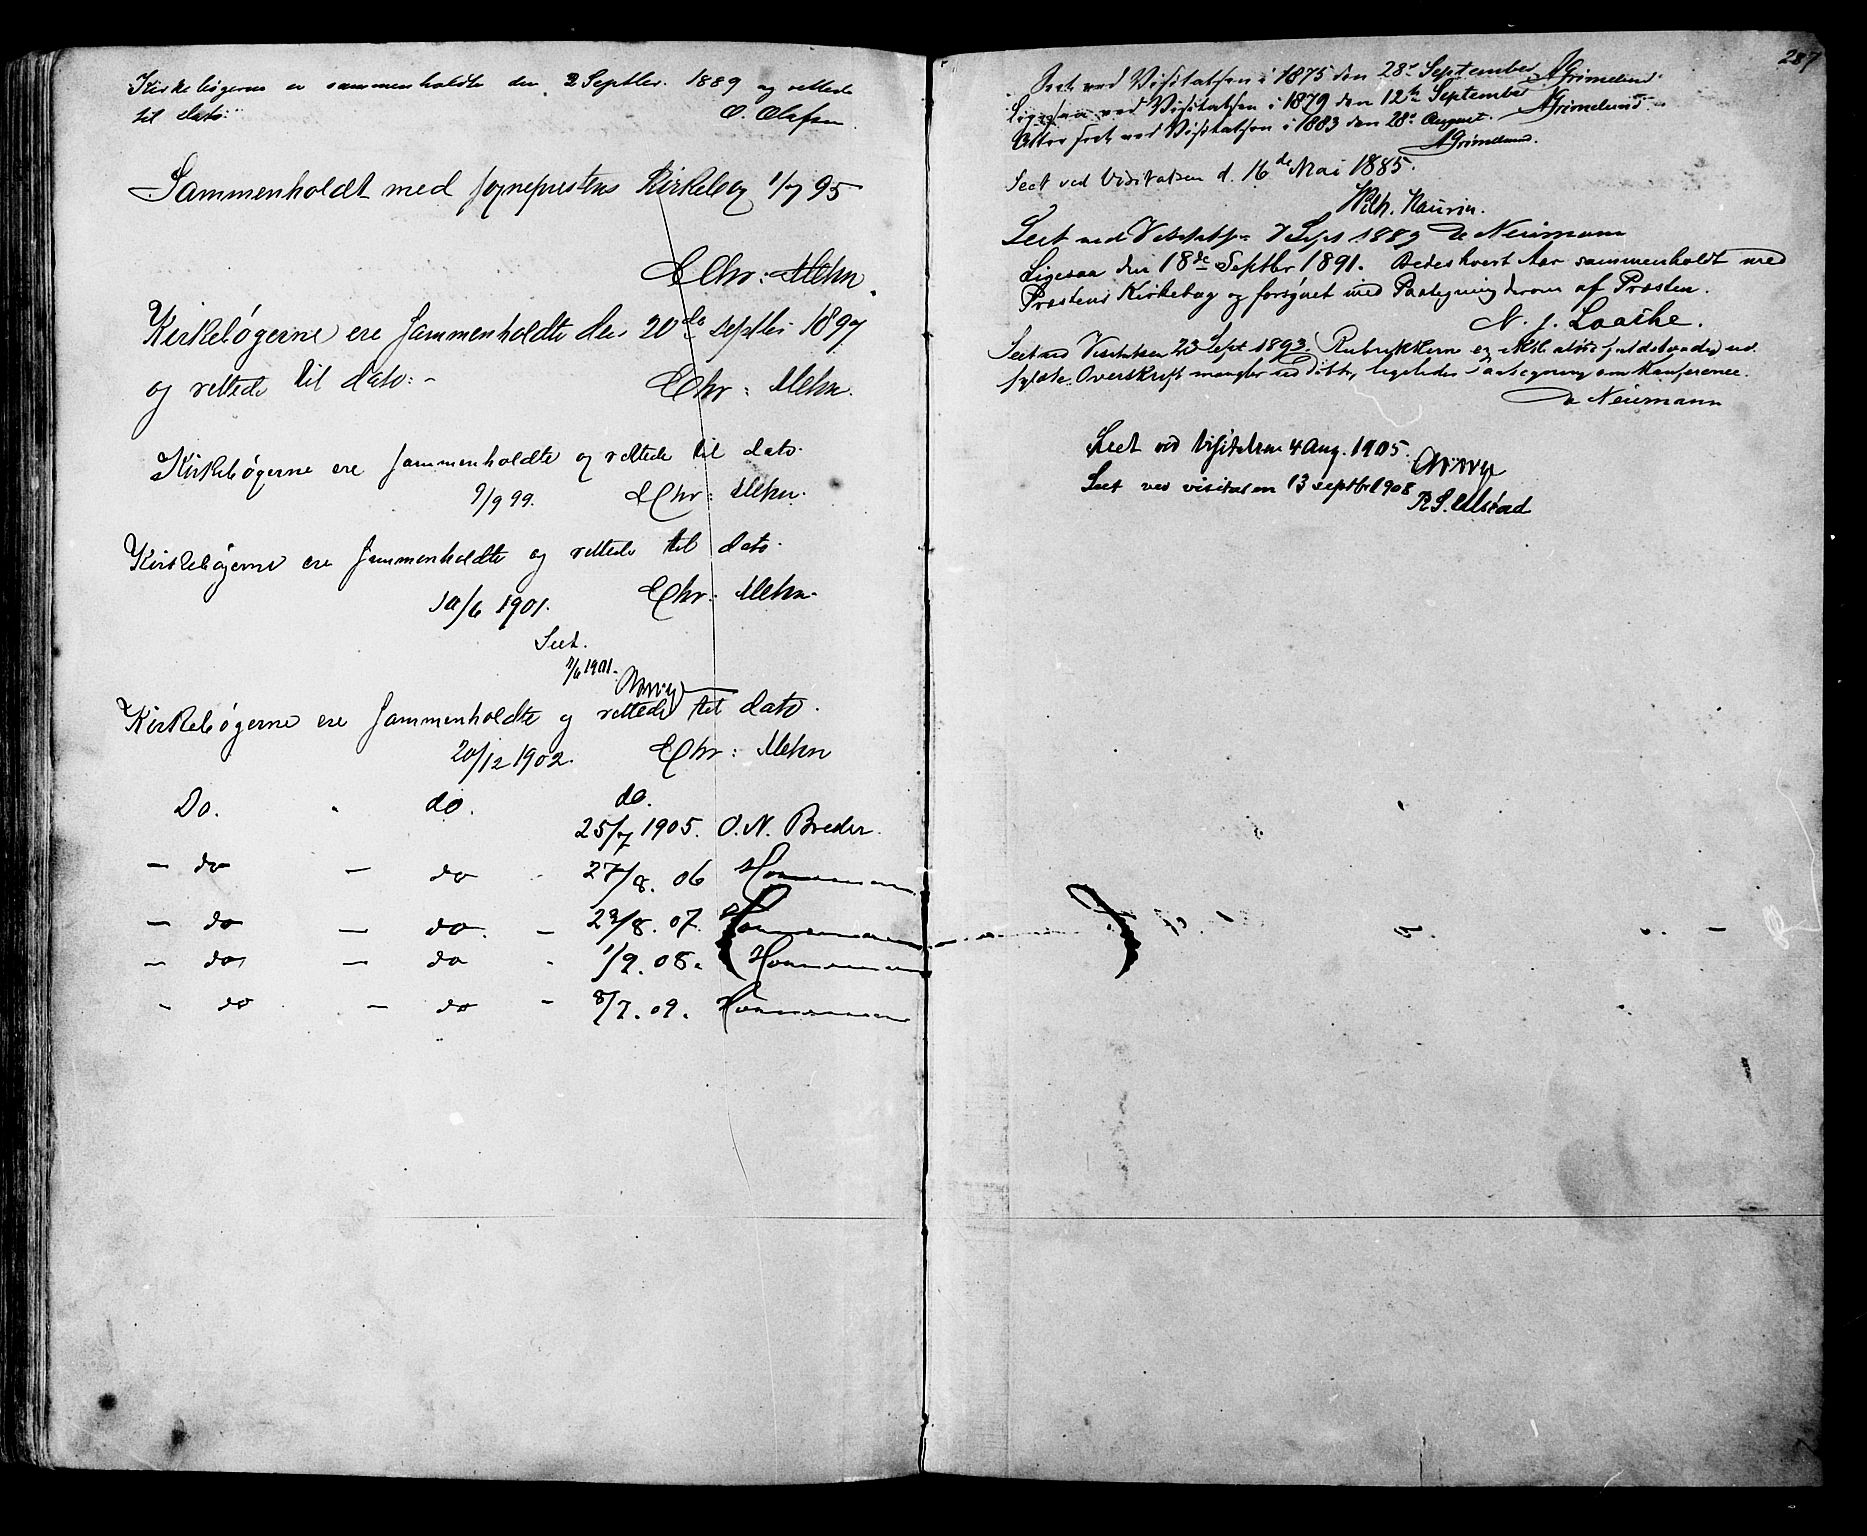 Kirkebøgerne er sammenholdte den 2 Septbr. 1889 og rettede
til dato.
O. Olafsen.
Sammenholdt med sognepræstens Kirkebog 1/7 95
Chr: Mehn.
Kirkebøgerne ere sammenholdte den 20de septbr 1897
og rettede til dato: -
Chr: Mehn.
Kirkebøgerne ere sammenholdte og rettede til dato.
9/9 99. Chr: Mehn.
Kirkebøgerne ere sammenholdte og rettede til dato.
10/6 1901. Chr: Mehn.
Seet.
1901.
Kirkebøgerne ere sammenholdte og rettede til dato.
20/12 1902. Chr: Mehn
Do. do. do.
25/7 1905. O. N. Breder.
- do - do - 27/8. 06
- do - do. - 8. 07.
- do - do - 1/9. 08.
- do - do - 8/7. 09.
287
Seet ved Visitatsen i 1875 den 28de September AGrimelund.
Ligesaa ved Visitatsen i 1879 den 12te September AGrimelund.
Atter seet ved Visitatsen i 1883 den 28de August.
AGrimelund.
Seet ved Visitatsen d. 16de Mai 1885.
Wilh.
Seet ved Visitatsen 7 Sept 1889 Neumann
Ligesaa den 18de Septbr 1891. Bedes hvert Aar sammenholdt med
Præstens Kirkebog og forsynet med Paategning derom af Præsten.
N. J. Laache.
Seet ved Visitatsen 23 Sept 1893. Rubrikkerne er ikke altid fuldstændig ud-
fyldte. Overskrift mangler ligeledes Paategning om Konference.
Neumann
Seet ved Visitatsen 4 Aug. 1905.
Seet ved visitasen 13 septbr 1908